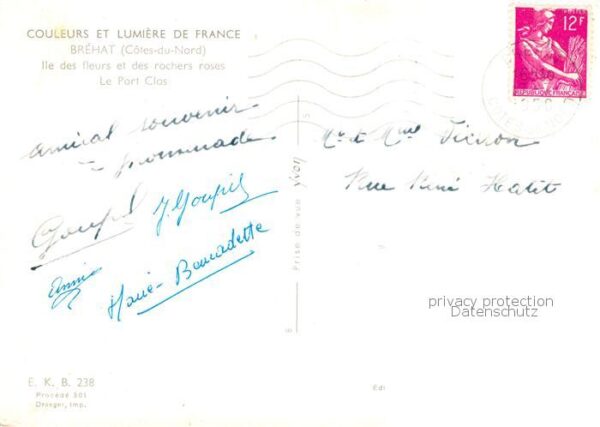 COULEURS ET LUMIÈRE DE FRANCE
BRÉHAT (Côtes-du-Nord)
Ile des fleurs et des rochers roses
Le Port Clos
amical souvenir
promenade
Goupil J. Goupil
Annie
Marie-Bernadette
E. K. B. 238
Procédé 301
Draeger, Imp.
Prise de vue yvon
POSTES
12F
REPUBLIQUE FRANÇAISE
Mr et Mme
Rue René
privacy protection
Datenschutz
Edi